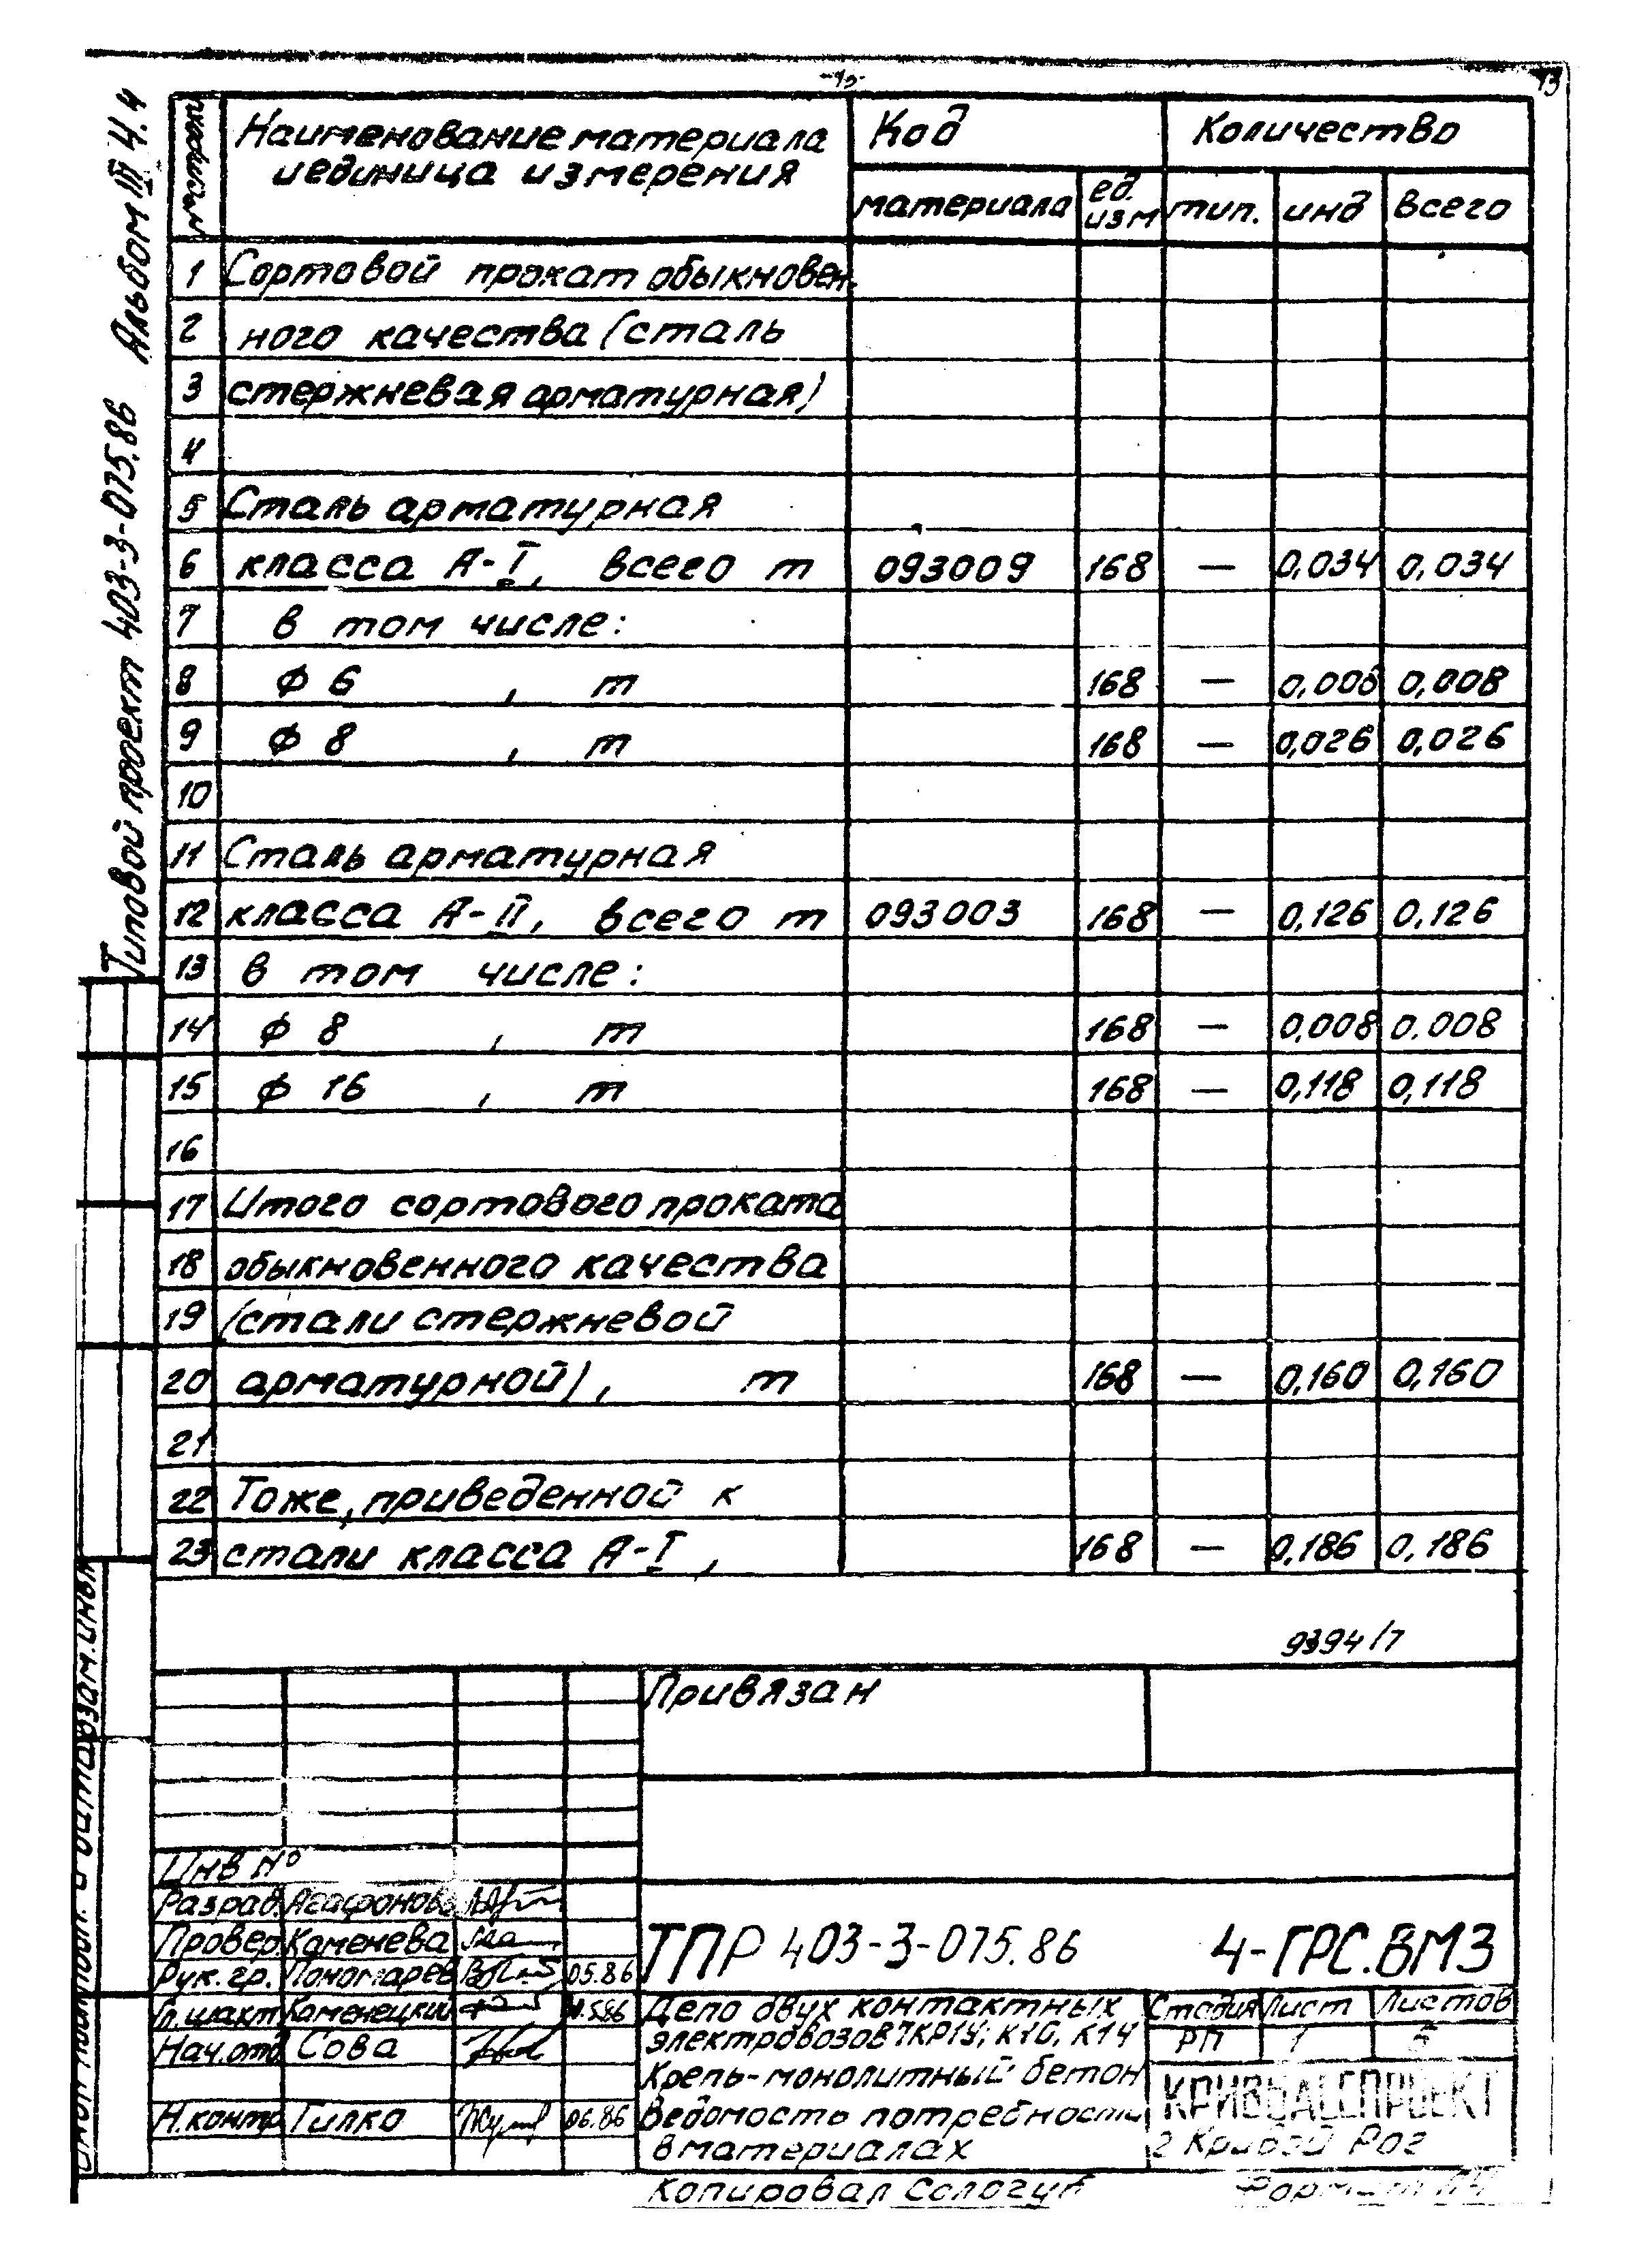 13
Альбом III Ч.4
Типовой проект 403-3-075.86
№ строки
Наименование материала и единица измерения
Код
Количество
материала
ед. изм
тип.
инд
всего
1 Сортовой прокат обыкновен-
2 ного качества (сталь
3 стержневая арматурная)
4
5 Сталь арматурная
6 класса А-I, всего т 093009 168 — 0,034 0,034
7 в том числе:
8 Ф 6 , т 168 — 0,008 0,008
9 Ф 8 , т 168 — 0,026 0,026
10
11 Сталь арматурная
12 класса А-II, всего т 093003 168 — 0,126 0,126
13 в том числе:
14 Ф 8 , т 168 — 0,008 0.008
15 Ф 16 , т 168 — 0,118 0,118
16
17 Итого сортового проката
18 обыкновенного качества
19 (стали стержневой
20 арматурной), т 168 — 0,160 0,160
21
22 Тоже, приведенной к
23 стали класса А-I, 168 — 0,186 0,186
9394/7
Привязан
Инв №
Разраб. Агафонова
Провер. Каменева
Рук. гр. Пономарев 05.86
Гл. шахт Каменецкий
Нач. отд Сова
Н. контр Гилко 06.86
ТПР 403-3-075.86 4-ГРС.ВМ3
Депо двух контактных
электровозов 7КР1У; К10, К14
Крепь-монолитный бетон
Ведомость потребности
в материалах
Стадия Лист Листов
РП 1
КРИВБАССПРОЕКТ
г Кривой Рог
Копировал Сологуб
Формат А4
взам. инв №